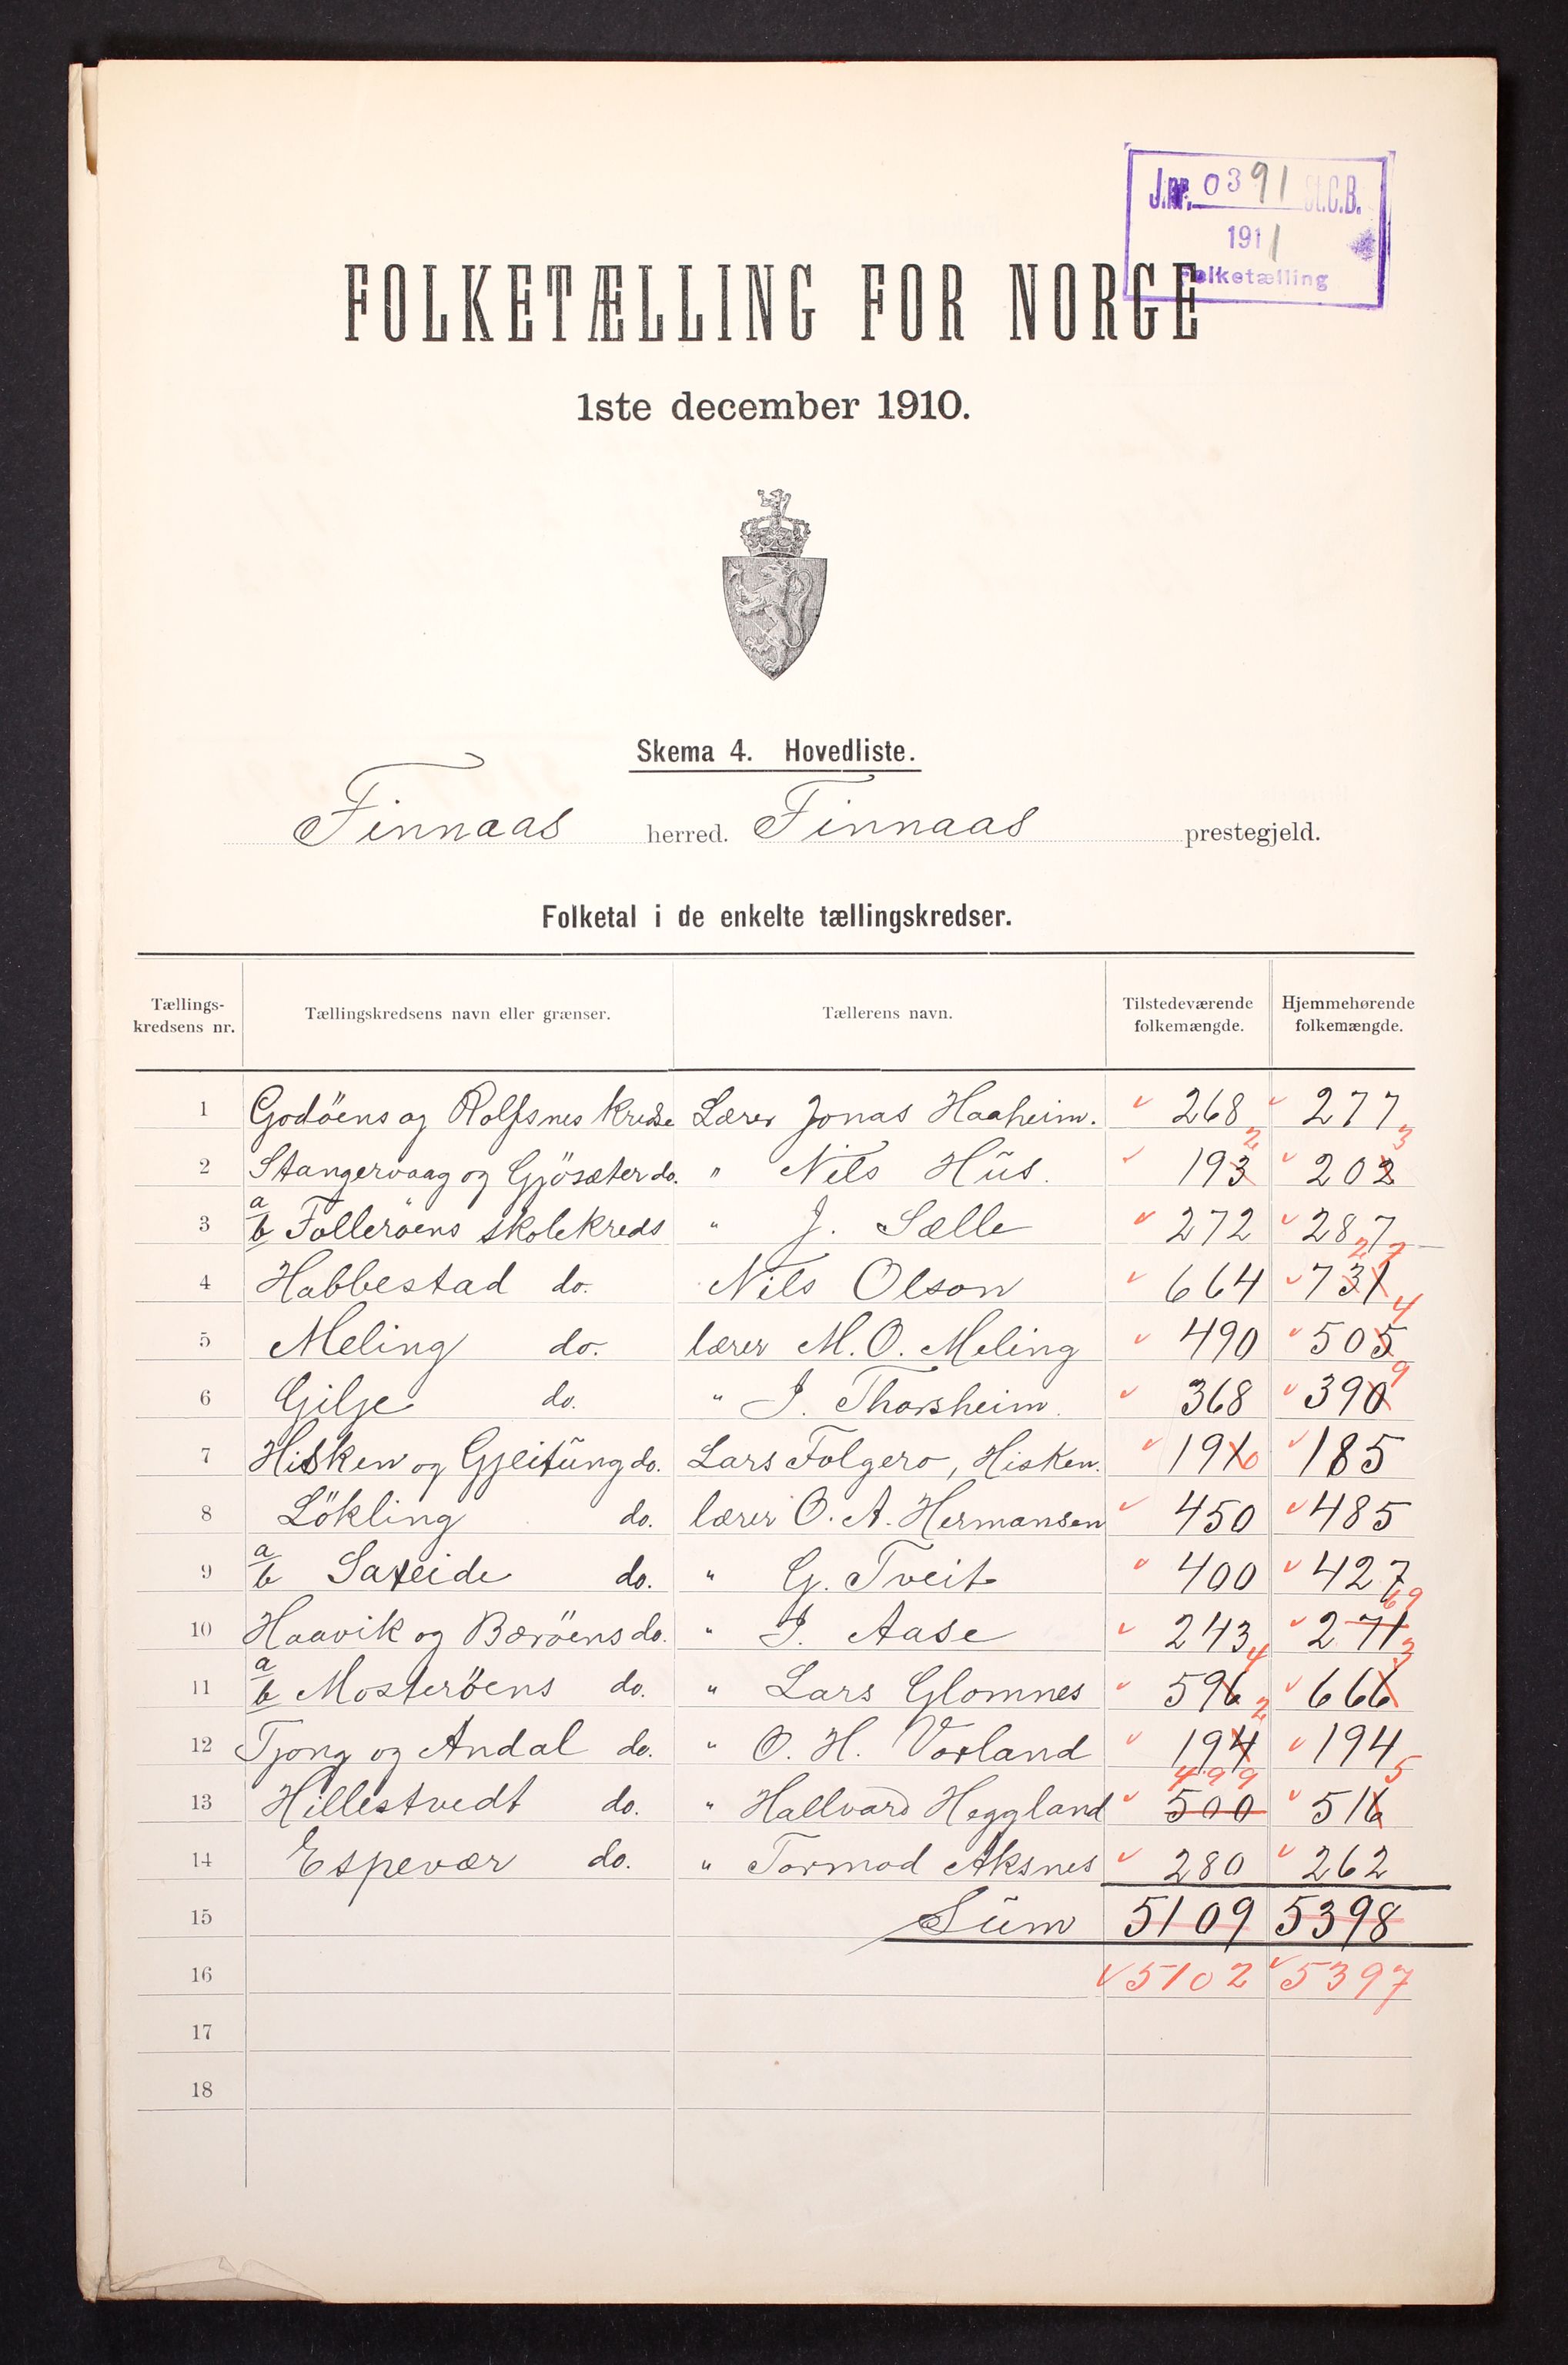 J.nr. 0391 St.C.B.
1911
Folketælling
FOLKETÆLLING FOR NORGE
1ste december 1910.
Skema 4. Hovedliste.
Finnaas herred. Finnaas prestegjeld.
Folketal i de enkelte tællingskredser.
Tællings-kredsens nr. Tællingskredsens navn eller grænser. Tællerens navn. Tilstedeværende folkemængde. Hjemmehørende folkemængde.
1 Godöens og Rolfsnes Kredse Lærer Jonas Haaheim. 268 277
2 3
2 Stangervaag og Gjösæter do. " Nils Hus. 193 202
3 a/b Folleröens skolekreds " J. Sælle 272 287
2 7
4 Habbestad do. Nils Olson 664 731
4
5 Meling do. lærer M. O. Meling 490 505
9
6 Gilje do. " J. Thorsheim. 368 390
7 Hisken og Gjeitung do. Lars Folgerø, Hisken. 191 0 185
8 Lökling do. lærer O. A. Hermansen 450 485
9 a/b Saxeide do. " G. Tveit 400 427
69
10 Haavik og Beröens do. " J. Aase 243 271
4 3
11 a/b Mosteröens do. " Lars Glomnes 596 666
2
12 Tjong og Andal do. " O. H. Vorland 194 194
499 5
13 Hillestvedt do. " Hallvard Heggland 500 516
14 Espevær do. " Tormod Aksnes 280 262
15 Sum 5109 5398
16 5102 5397
17
18